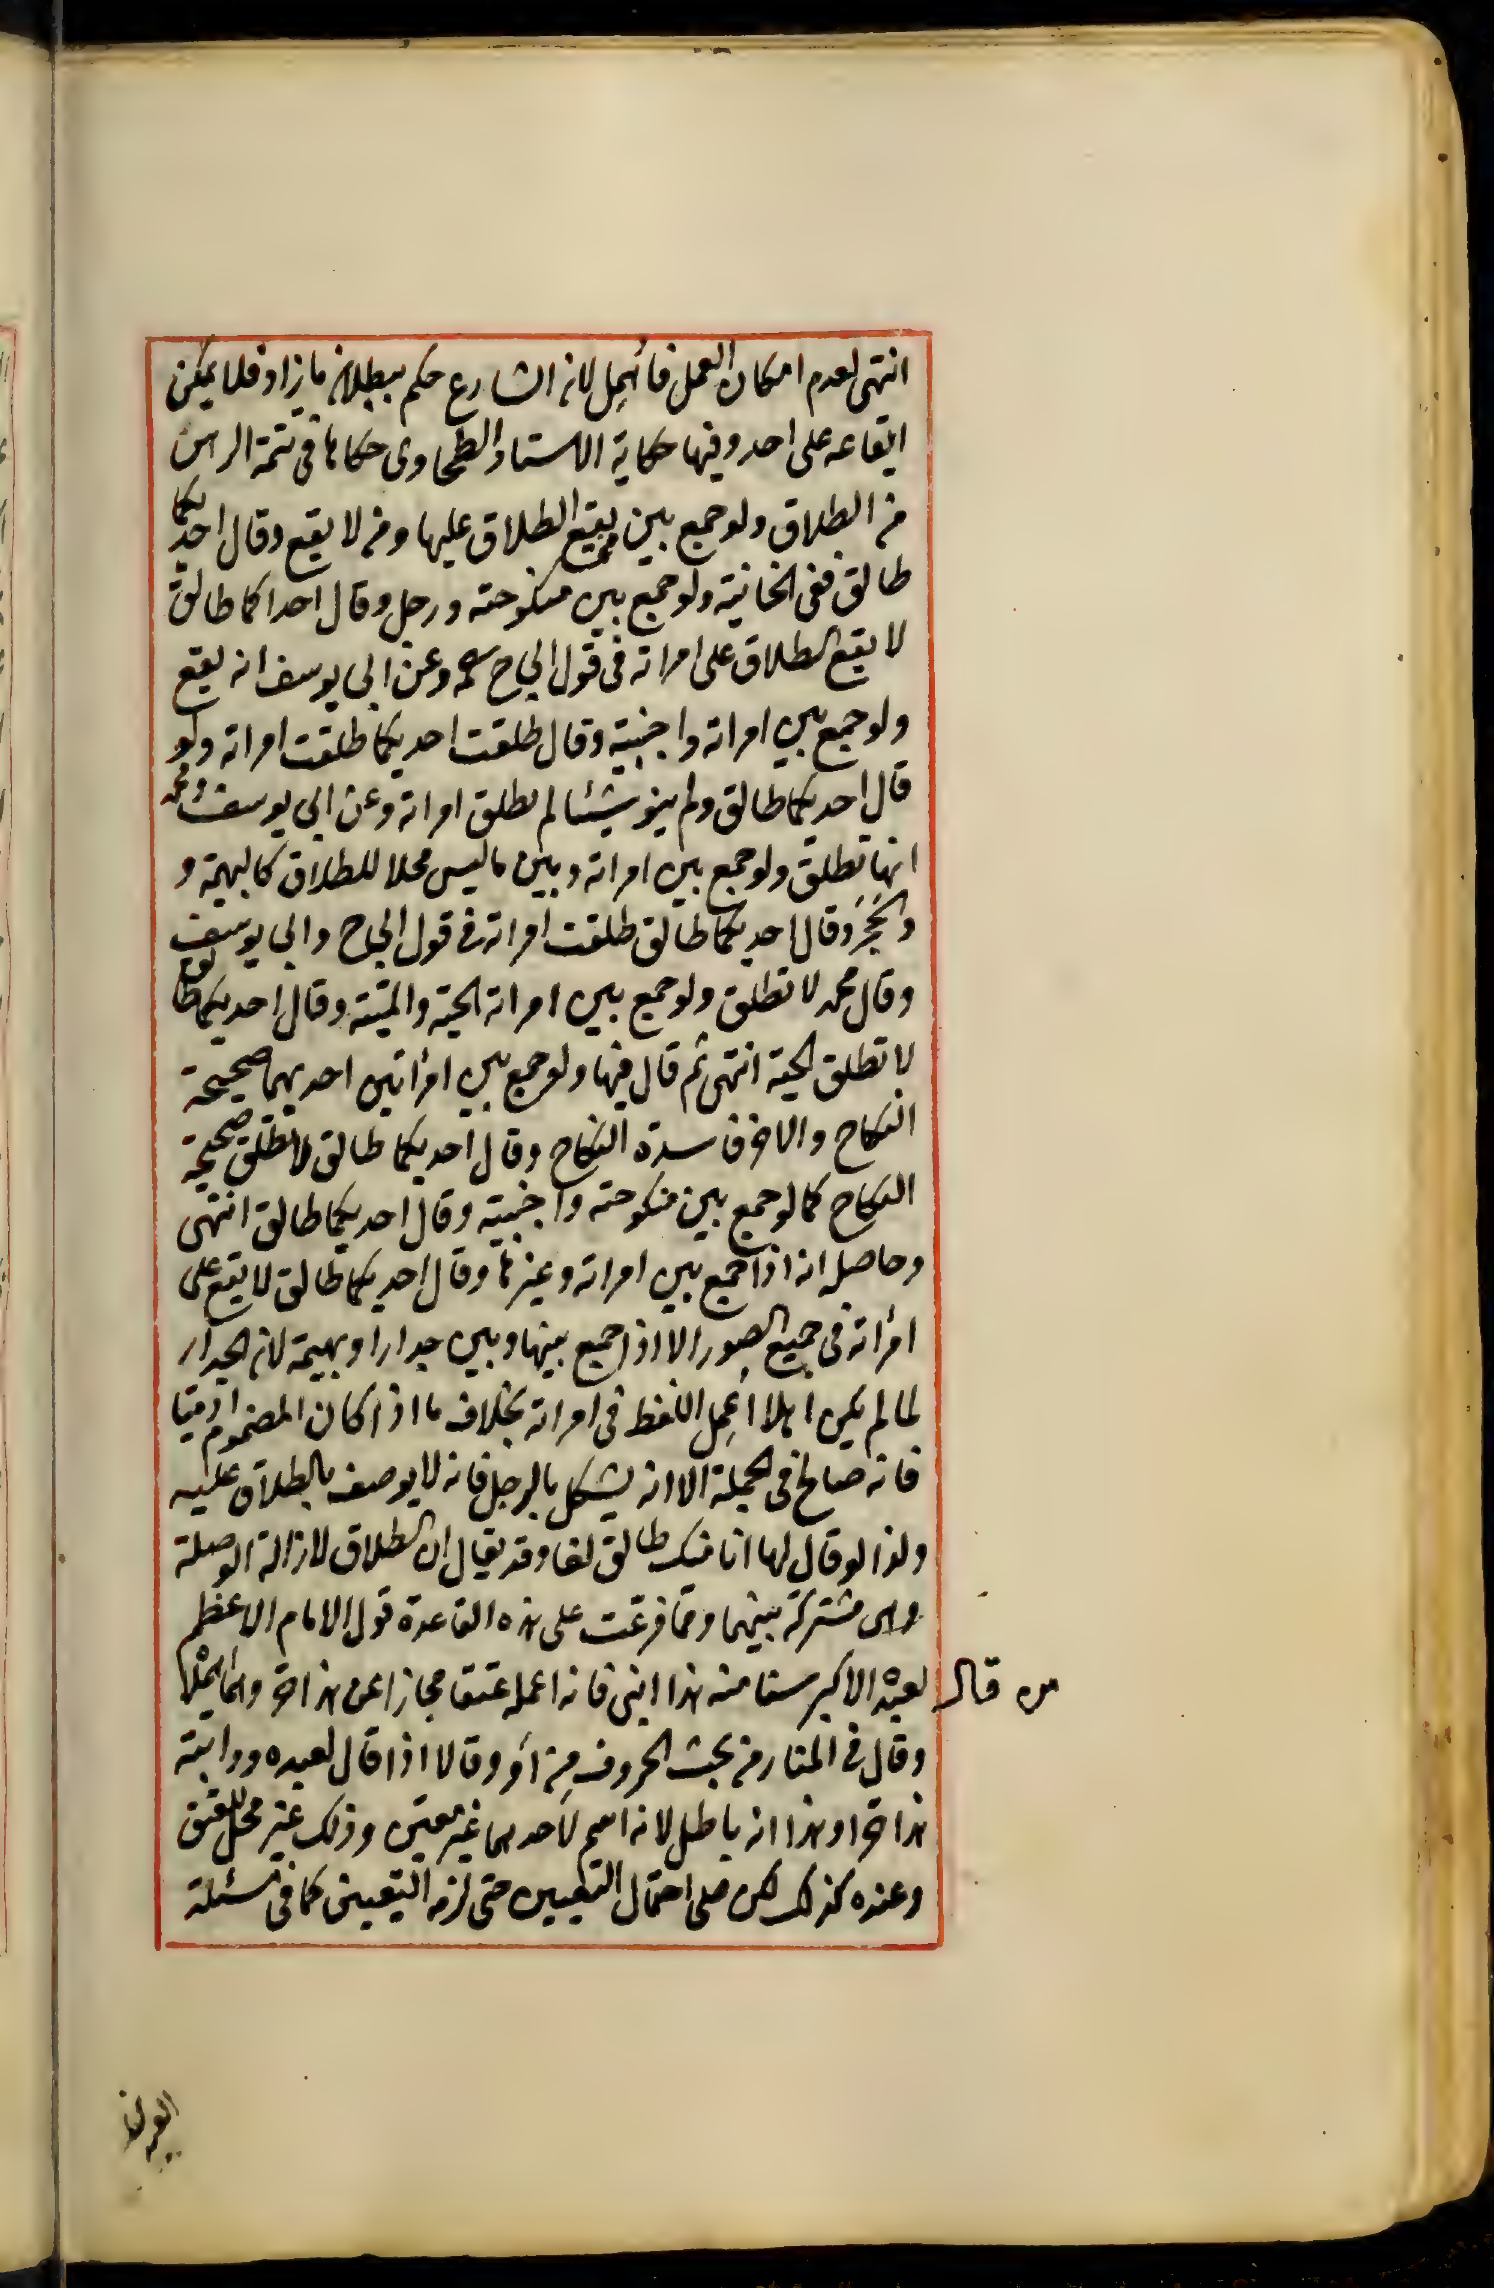 انتهى لعدم امكان العمل فأهمل لان الشارع حكم ببطلان ما زاد فلا يمكن
ايقاعه على احد وفيها حكاية الاستاد الطحاوى حكاها فى يتيمة الدهر
من الطلاق ولو جمع بين من يقع الطلاق عليها ومن لا يقع وقال احديكما
طالق ففى الخانية ولو جمع بين منكوحته ورجل وقال احداكما طالق
لا يقع الطلاق على امراته فى قول ابى ح رحمه وعن ابى يوسف انه يقع
ولو جمع بين امراته واجنبية وقال طلقت احديكما طلقت امراته ولو
قال احديكما طالق ولم ينو شيئا لم تطلق امراته وعن ابى يوسف ومحمد
انها تطلق ولو جمع بين امراته وبين ما ليس محلا للطلاق كالبهيمة و
والحجر وقال احديكما طالق طلقت امراته فى قول ابى ح وابى يوسف
وقال محمد لا تطلق ولو جمع بين امراته الحية والميتة وقال احديكما طالق
لا تطلق الحية انتهى ثم قال فيها ولو جمع بين امرأتين احديهما صحيحة
النكاح والاخرى فاسدة النكاح وقال احديكما طالق لا تطلق صحيحة
النكاح كما لو جمع بين منكوحته واجنبية وقال احديكما طالق انتهى
وحاصله انه اذا جمع بين امراته وغيرها وقال احديكما طالق لا يقع على
امرأته فى جميع الصور الا اذا جمع بينها وبين جدار او بهيمة لان الجدار
لما لم يكن اهلا أعمل اللفظ فى امراته بخلاف ما اذا كان المضموم ادميا
فانه صالح فى الجملة الا انه يشكل بالرجل فانه لا يوصف بالطلاق عليه
ولذا لو قال لها انا منك طالق لغا وقد يقال ان الطلاق لازالة الوصلة
وهى مشتركة بينهما ومما فرعت على هذه القاعدة قول الامام الاعظم
من قال
لعبده الاكبر سنا منه هذا ابنى فانه اعمله عتقا مجازا عن هذا حر واهملاه
وقال فى المنار من بحث الحروف من أو وقالا اذا قال لعبده ودابته
هذا حر او هذا انه باطل لانه اسم لأحدهما غير معين وذلك غير محل للعتق
وعنده كذلك لكن على احتمال التعيين حتى لزمه التعيين كما فى مسئلة